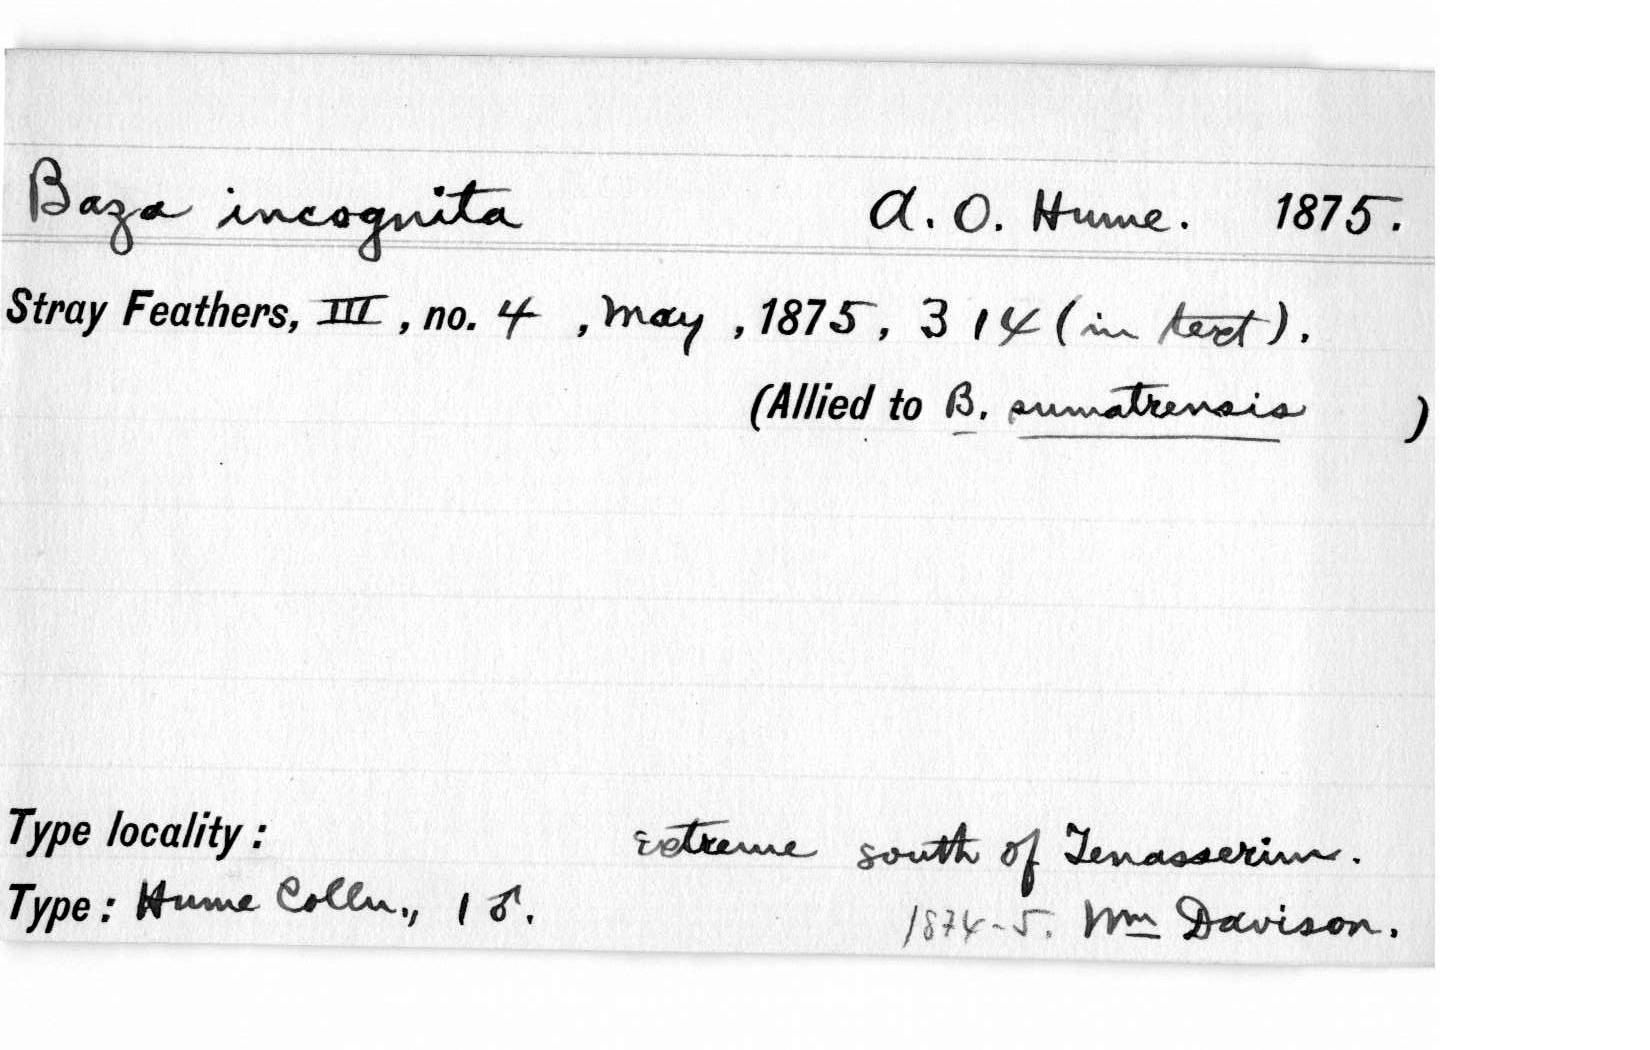 Baza incognita A. O. Hume. 1875.
Stray Feathers, III, no. 4, May, 1875, 314 (in text).
(Allied to B. sumatrensis )
Type locality: extreme south of Tenasserim.
Type: Hume Colln., 1 ♂. 1874-5. Wm Davison.